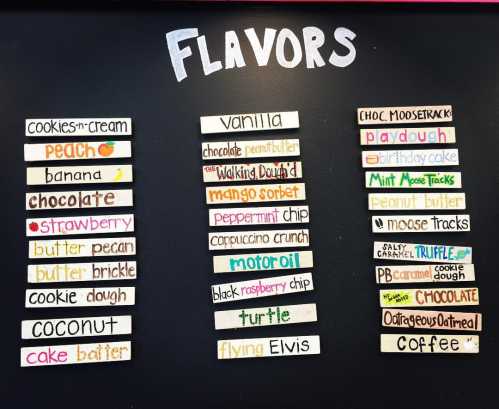 FLAVORS
cookies-n-cream
peach
banana
chocolate
strawberry
butter pecan
butter brickle
cookie dough
coconut
cake batter
vanilla
chocolate peanutbutter
THE Walking Dough'd
mango sorbet
peppermint chip
cappuccino crunch
motor oil
black raspberry chip
turtle
flying Elvis
CHOC. MOOSETRACK
playdough!
birthday cake
Mint Moose Tracks
peanut butter
moose tracks
SALTY CARAMEL TRUFFLE
PB caramel cookie dough
CHOCOLATE
Outrageous Oatmeal
coffee